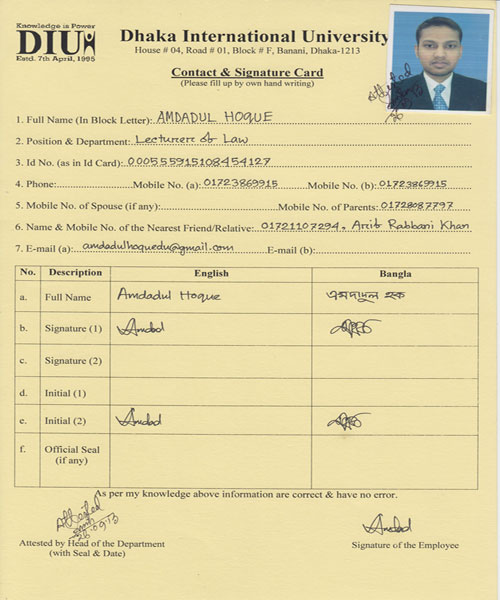 Knowledge is Power
DIU
Estd. 7th April, 1995
Dhaka International University
House # 04, Road # 01, Block # F, Banani, Dhaka-1213
Contact & Signature Card
(Please fill up by own hand writing)
Attested
1. Full Name (In Block Letter): AMDADUL HOQUE
2. Position & Department: Lecturer of Law
3. Id No. (as in Id Card): 000555915108454127
4. Phone: Mobile No. (a): 01723869915 Mobile No. (b): 01723869915
5. Mobile No. of Spouse (if any): Mobile No. of Parents: 01728087797
6. Name & Mobile No. of the Nearest Friend/Relative: 01721107294. Arib Rabbani Khan
7. E-mail (a): amdadulhoquedu@gmail.com E-mail (b):
No. Description English Bangla
a. Full Name Amdadul Hoque এমদাদুল হক
b. Signature (1) Amdad
c. Signature (2)
d. Initial (1)
e. Initial (2) Amdad
f. Official Seal
(if any)
As per my knowledge above information are correct & have no error.
Attested
Amdad
Attested by Head of the Department Signature of the Employee
(with Seal & Date)